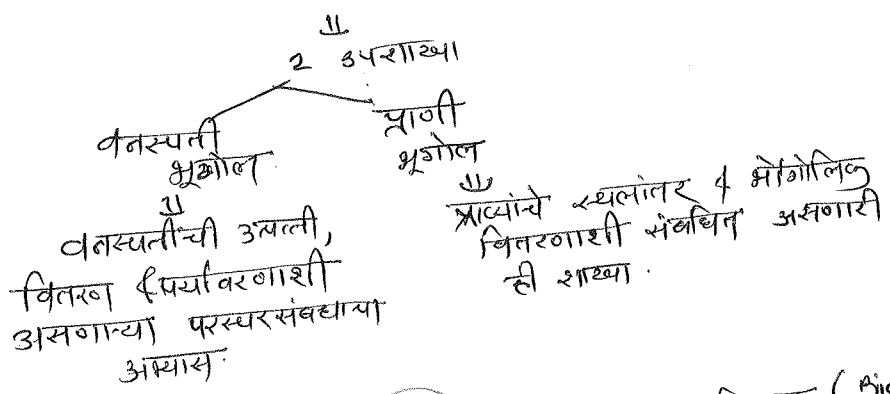 २ उपशाखा
वनस्पती
भूगोल
प्राणी
भूगोल
वनस्पतींची उत्पत्ती,
वितरण & पर्यावरणाशी
असणाऱ्या परस्परसंबधाचा
अभ्यास.
प्राण्यांचे स्थलांतर & भौगोलिक
वितरणाशी संबधित असणारी
ही शाखा.